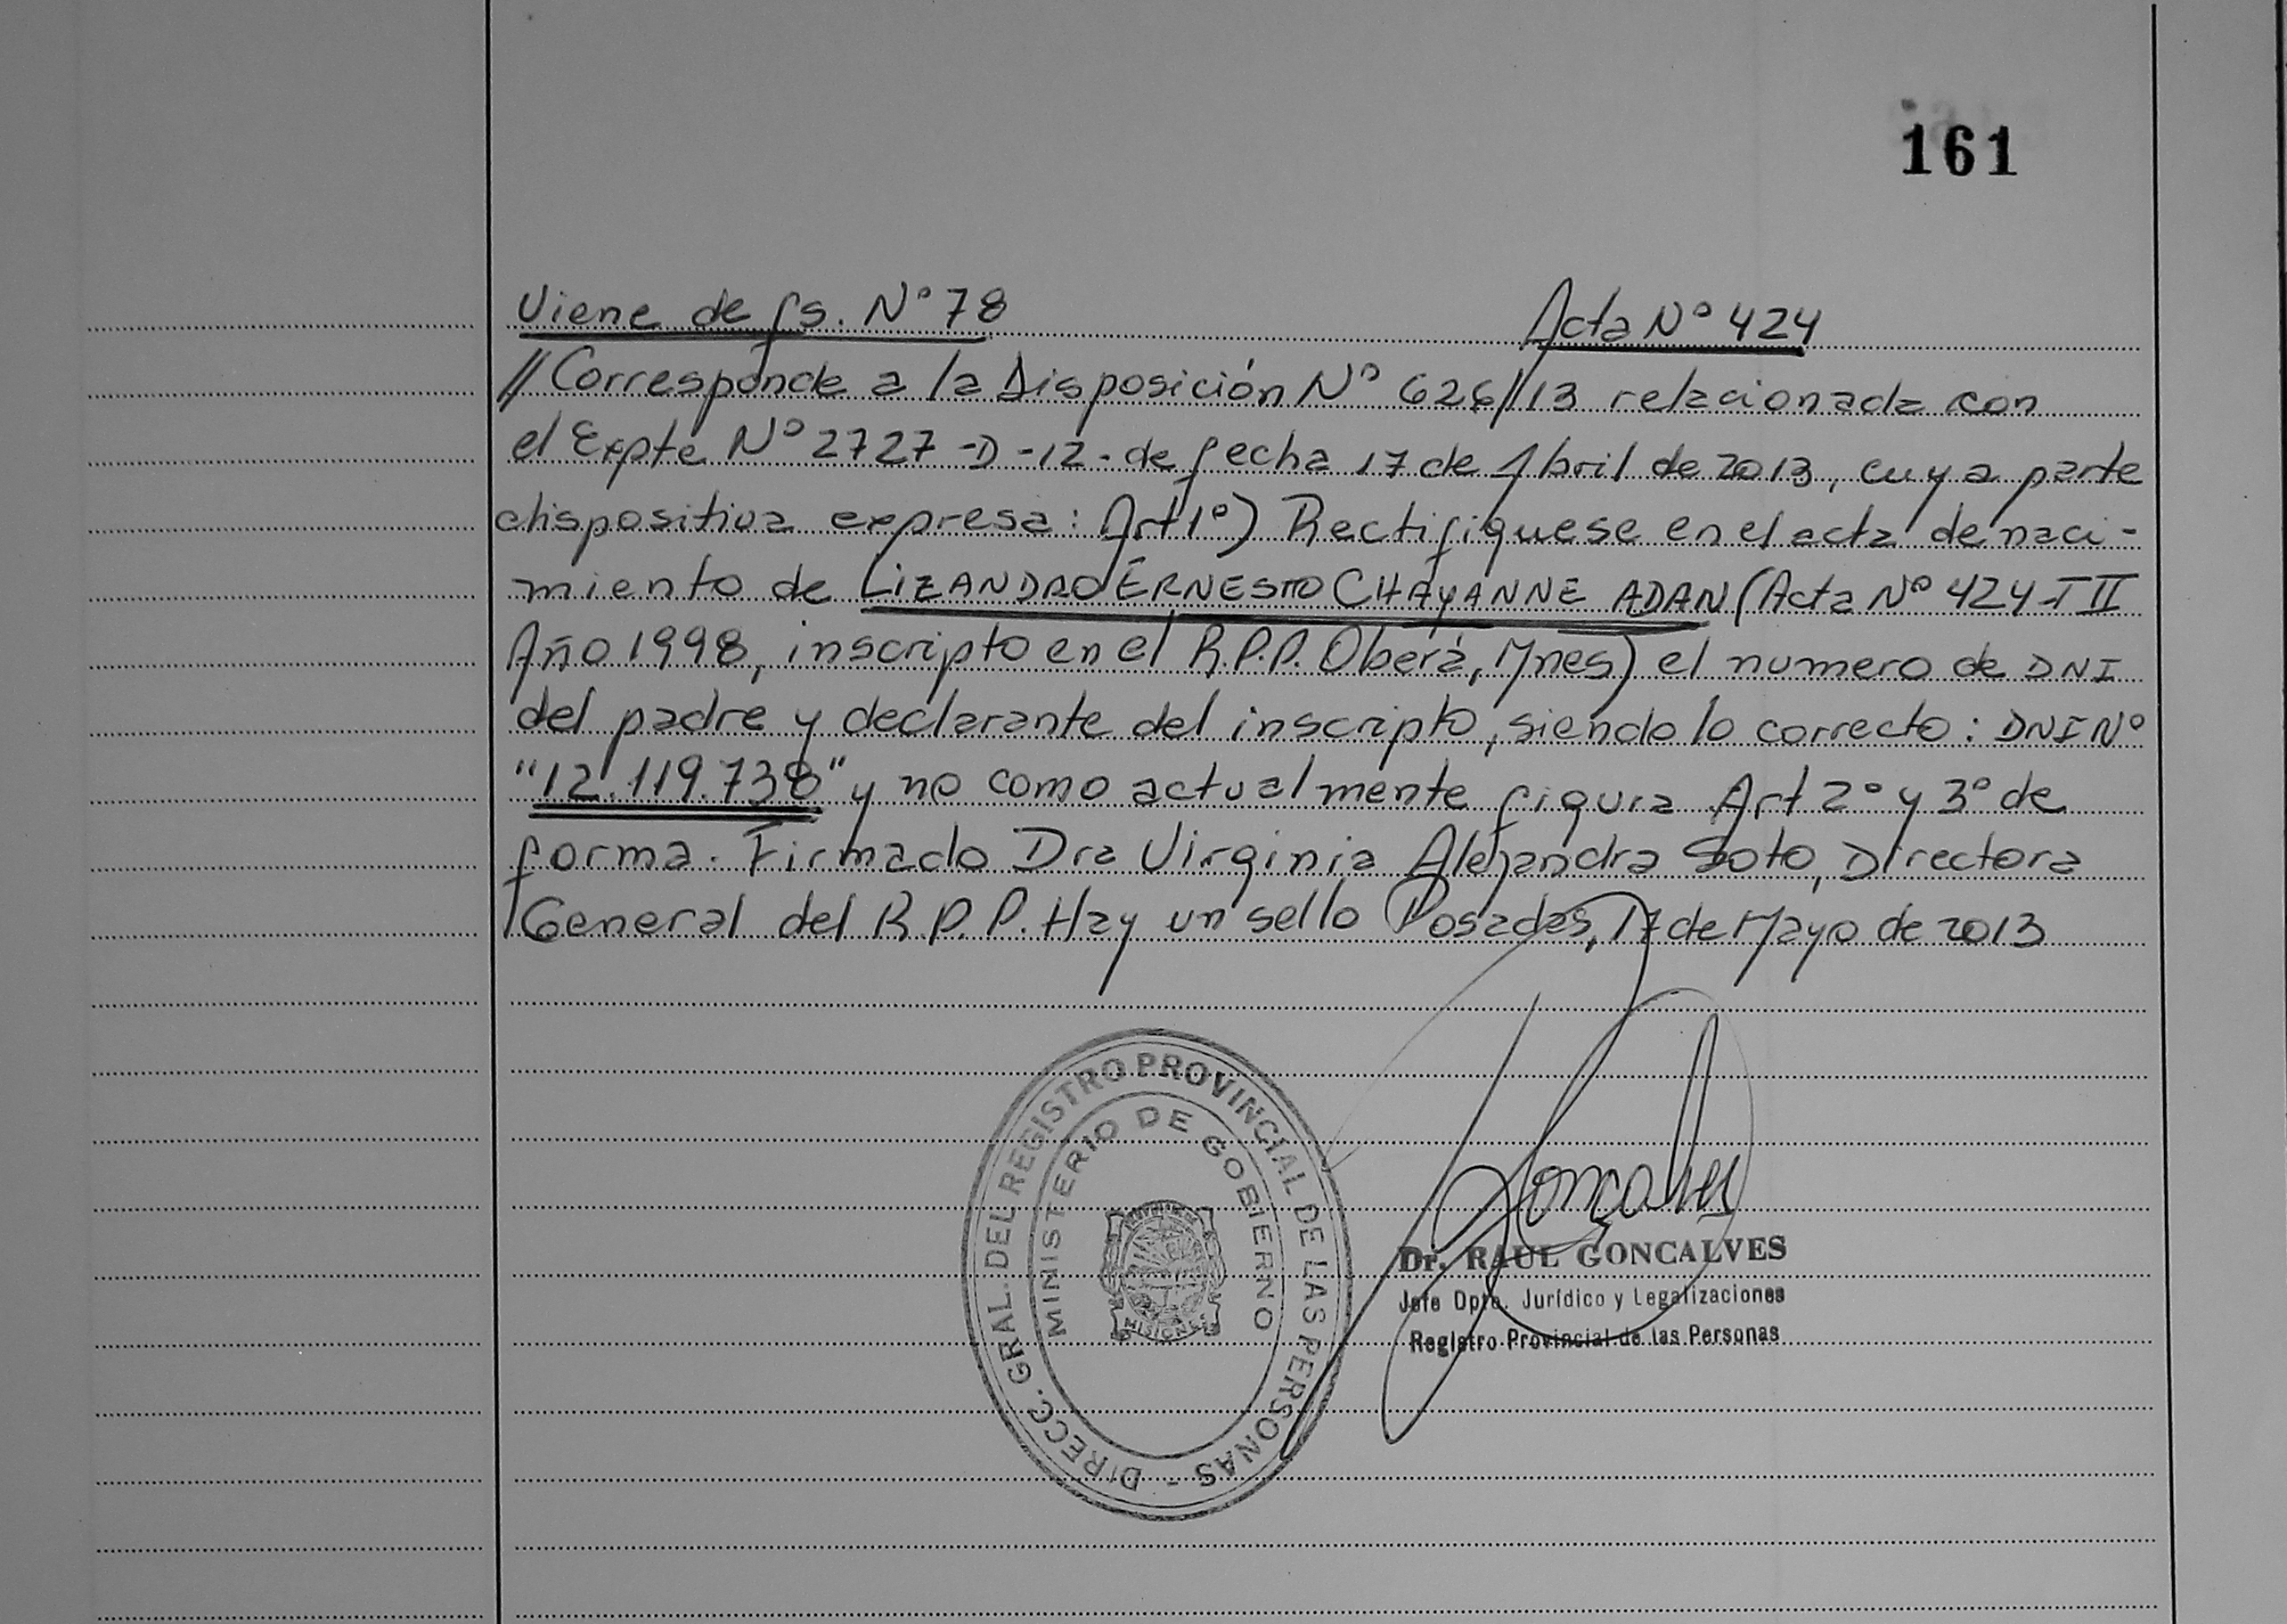 161
Viene de fs. Nº 78 Acta Nº 424
// Corresponde a la Disposición Nº 626/13 relacionada con
el Expte Nº 2727-D-12- de fecha 17 de Abril de 2013, cuya parte
dispositiva expresa: Art 1º) Rectifiquese en el acta de naci-
miento de LIZANDRO ERNESTO CHAYANNE ADAN (Acta Nº 424-TII
Año 1998, inscripto en el R.P.P. Oberá, Mnes) el numero de DNI
del padre y declarante del inscripto, siendo lo correcto: DNI Nº
"12.119.738" y no como actualmente figura Art 2º y 3º de
forma. Firmado Dra Virginia Alejandra Soto, Directora
General del R.P.P. Hay un sello Posadas, 17 de Mayo de 2013
DIRECC. GRAL. DEL REGISTRO PROVINCIAL DE LAS PERSONAS -
MINISTERIO DE GOBIERNO
MISIONES
Goncalves
Dr. RAUL GONCALVES
Jefe Dpto. Jurídico y Legalizaciones
Registro Provincial de las Personas